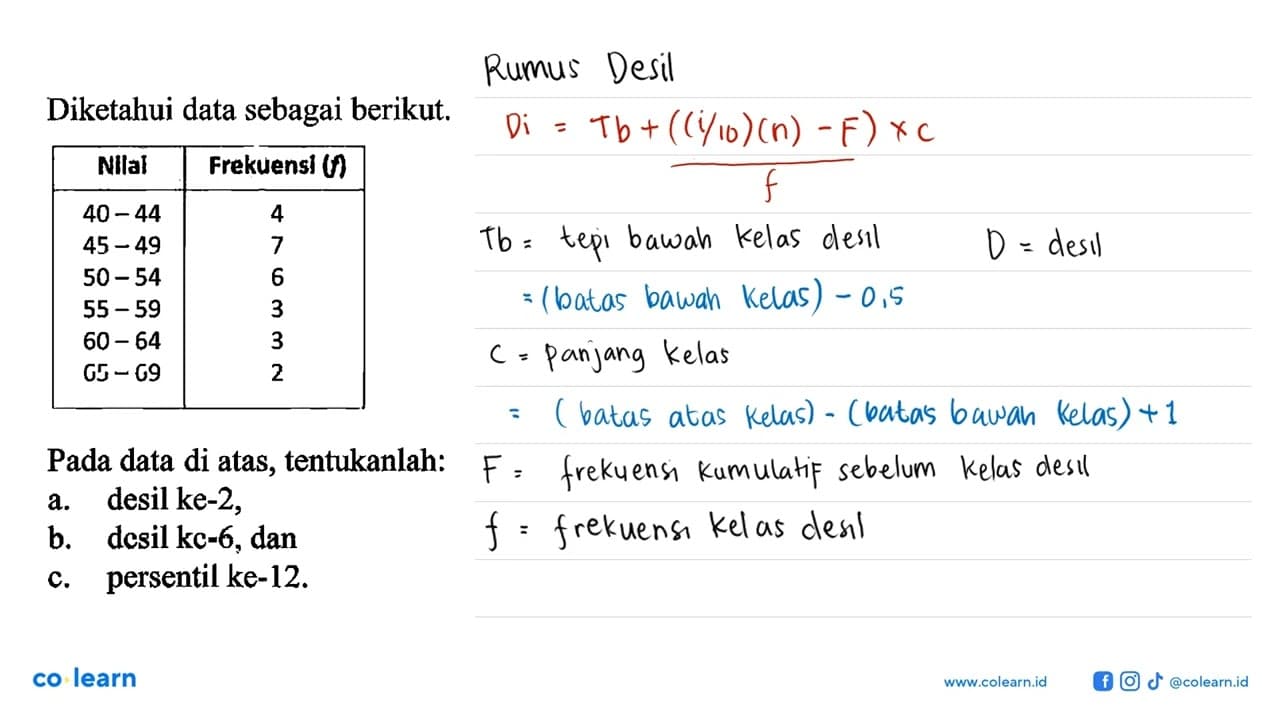 Rumus Desil
Diketahui data sebagai berikut.
Di = Tb + ((i/10)(n) - F) × c
f
Nilai Frekuensi (f)
40 – 44 4
45 – 49 7
50 – 54 6
55 – 59 3
60 – 64 3
65 – 69 2
Tb = tepi bawah kelas desil D = desil
= (batas bawah kelas) - 0,5
C = panjang kelas
= (batas atas kelas) - (batas bawah kelas) + 1
Pada data di atas, tentukanlah:
a. desil ke-2,
b. desil ke-6, dan
c. persentil ke-12.
F = frekuensi kumulatif sebelum kelas desil
f = frekuensi kelas desil
co learn
www.colearn.id
@colearn.id